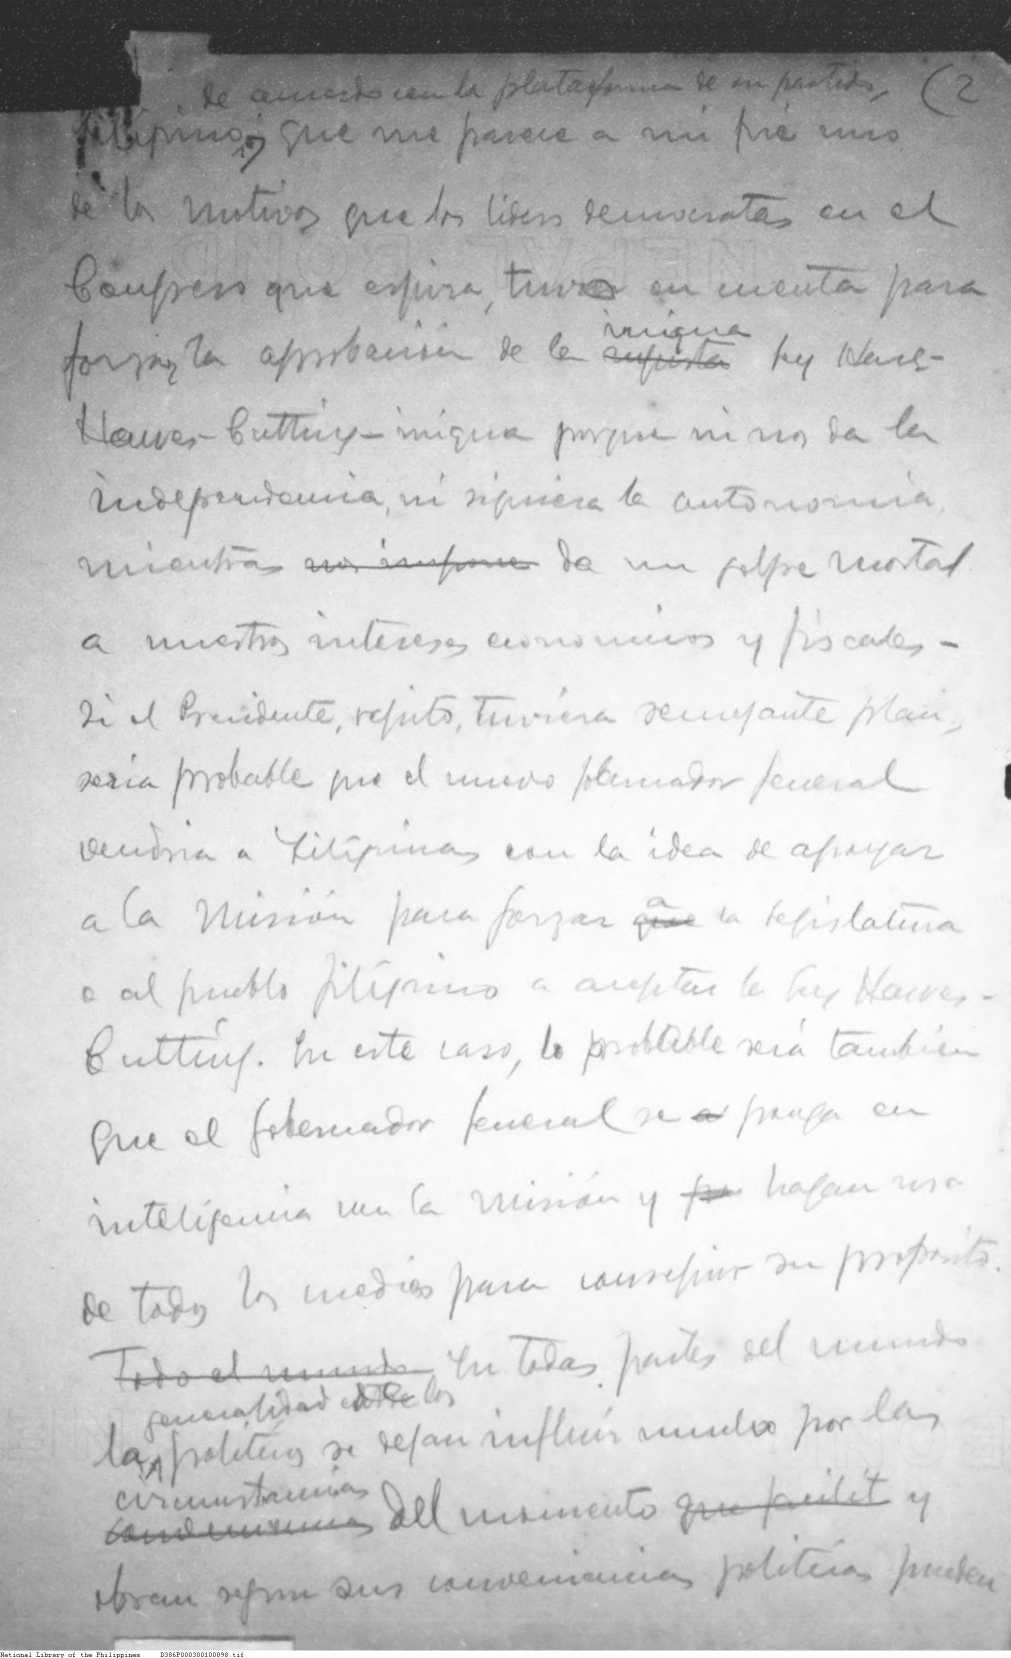 (2
de acuerdo con la plataforma de su partido,
filipino, que me parece a mi fué uno
de los motivos que los liders democratas en el
Congreso que espira, tuvo en cuenta para
forzar la aprobación de la injusta inicua ley Hare-
Hawes-Cutting - inicua porque ni nos da la
independencia, ni siquiera la autonomia,
mientras nos impone da un golpe mortal
a nuestros intereses economicos y fiscales -
Si el Presidente, repito, tuviera semejante plan,
seria probable que el nuevo gobernador general
vendria a Filipinas con la idea de apoyar
a la Misión para forzar que a la Legislatura
o al pueblo filipino a aceptar la ley Hawes-
Cutting. En este caso, lo probable será tambien
que el gobernador general se a ponga en
inteligencia con la Misión y hagan uso
de todos los medios para conseguir su proposito.
Todo el mundo En todas partes del mundo
generalidad de los
la politicos se dejan influir mucho por las
circunstancias
del momento que y
obran segun sus conveniencias politicas pueden
National Library of the Philippines D386P000300100098.tif